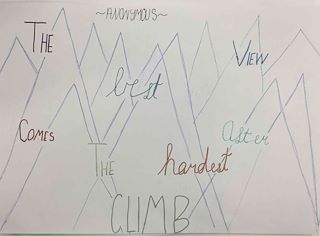 ~ANONYMOUS~
THE best VIEW
COMES after
THE hardest
CLIMB